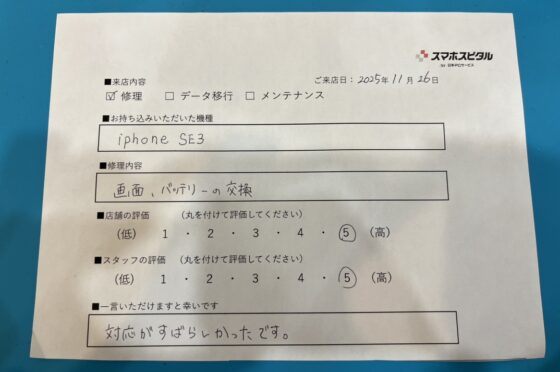 スマホスピタル
by 日本PCサービス
■来店内容
ご来店日：2025年11月26日
☑ 修理 □ データ移行 □ メンテナンス
■お持ち込みいただいた機種
iphone SE3
■修理内容
画面、バッテリーの交換
■店舗の評価 （丸を付けて評価してください）
（低） 1 ・ 2 ・ 3 ・ 4 ・ 5 （高）
■スタッフの評価 （丸を付けて評価してください）
（低） 1 ・ 2 ・ 3 ・ 4 ・ 5 （高）
■一言いただけますと幸いです
対応がすばらしかったです。